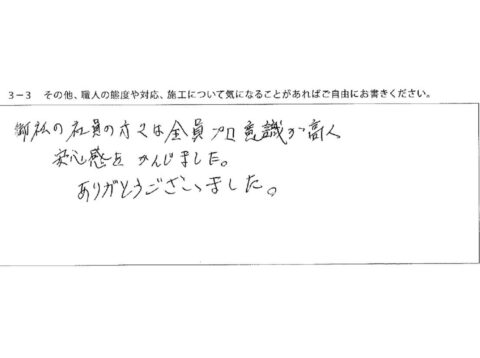 3-3 その他、職人の態度や対応、施工について気になることがあればご自由にお書きください。
御社の社員の方々は全員プロ意識が高く
安心感を かんじました。
ありがとうございました。